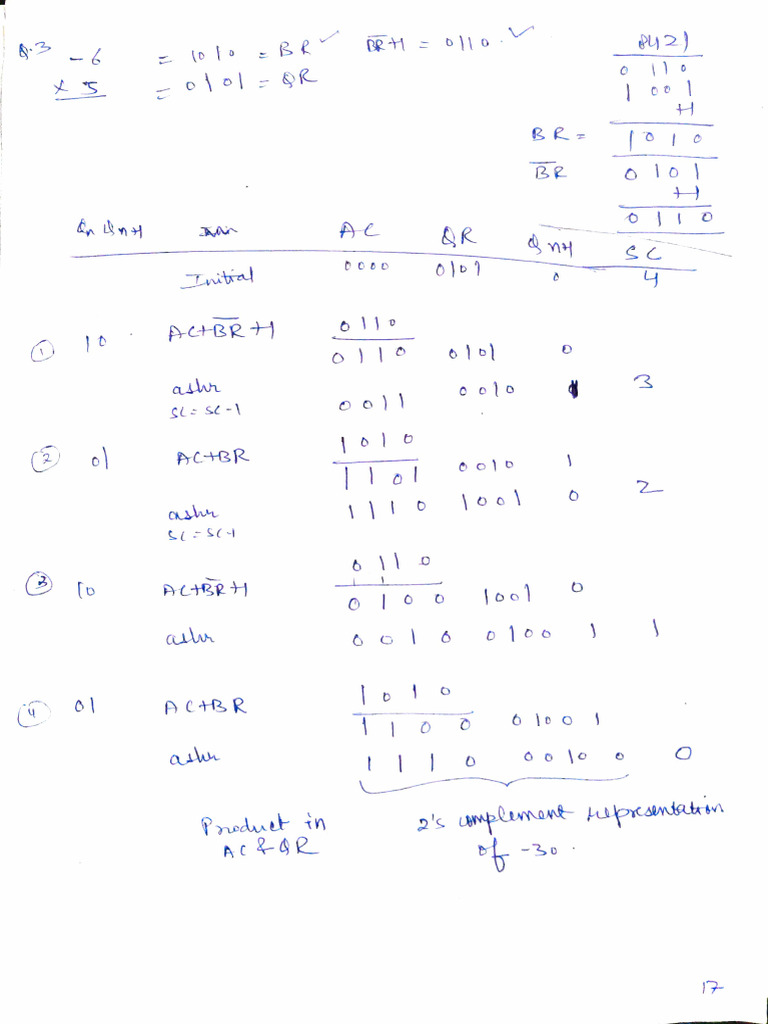 Q.3 -6 = 1010 = BR ✓ B̅R̅+1 = 0110. ✓
x 5 = 0101 = QR
8421
0 110
1 001
+1
BR = 1010
B̅R̅ 0101
+1
0110
Qn Qn+1 AC QR Qn+1 SC
Initial 0000 0101 0 4
① 10 AC+B̅R̅+1 0110
0110 0101 0
ashr 0011 0010 1 3
SC = SC-1
② 01 AC+BR 1010
1101 0010 1
ashr 1110 1001 0 2
SC = SC-1
③ 10 AC+B̅R̅+1 0110
0100 1001 0
ashr 0010 0100 1 1
④ 01 AC+BR 1010
1100 01001
ashr 1110 00100 0
Product in 2's complement representation
AC & QR of -30.
17